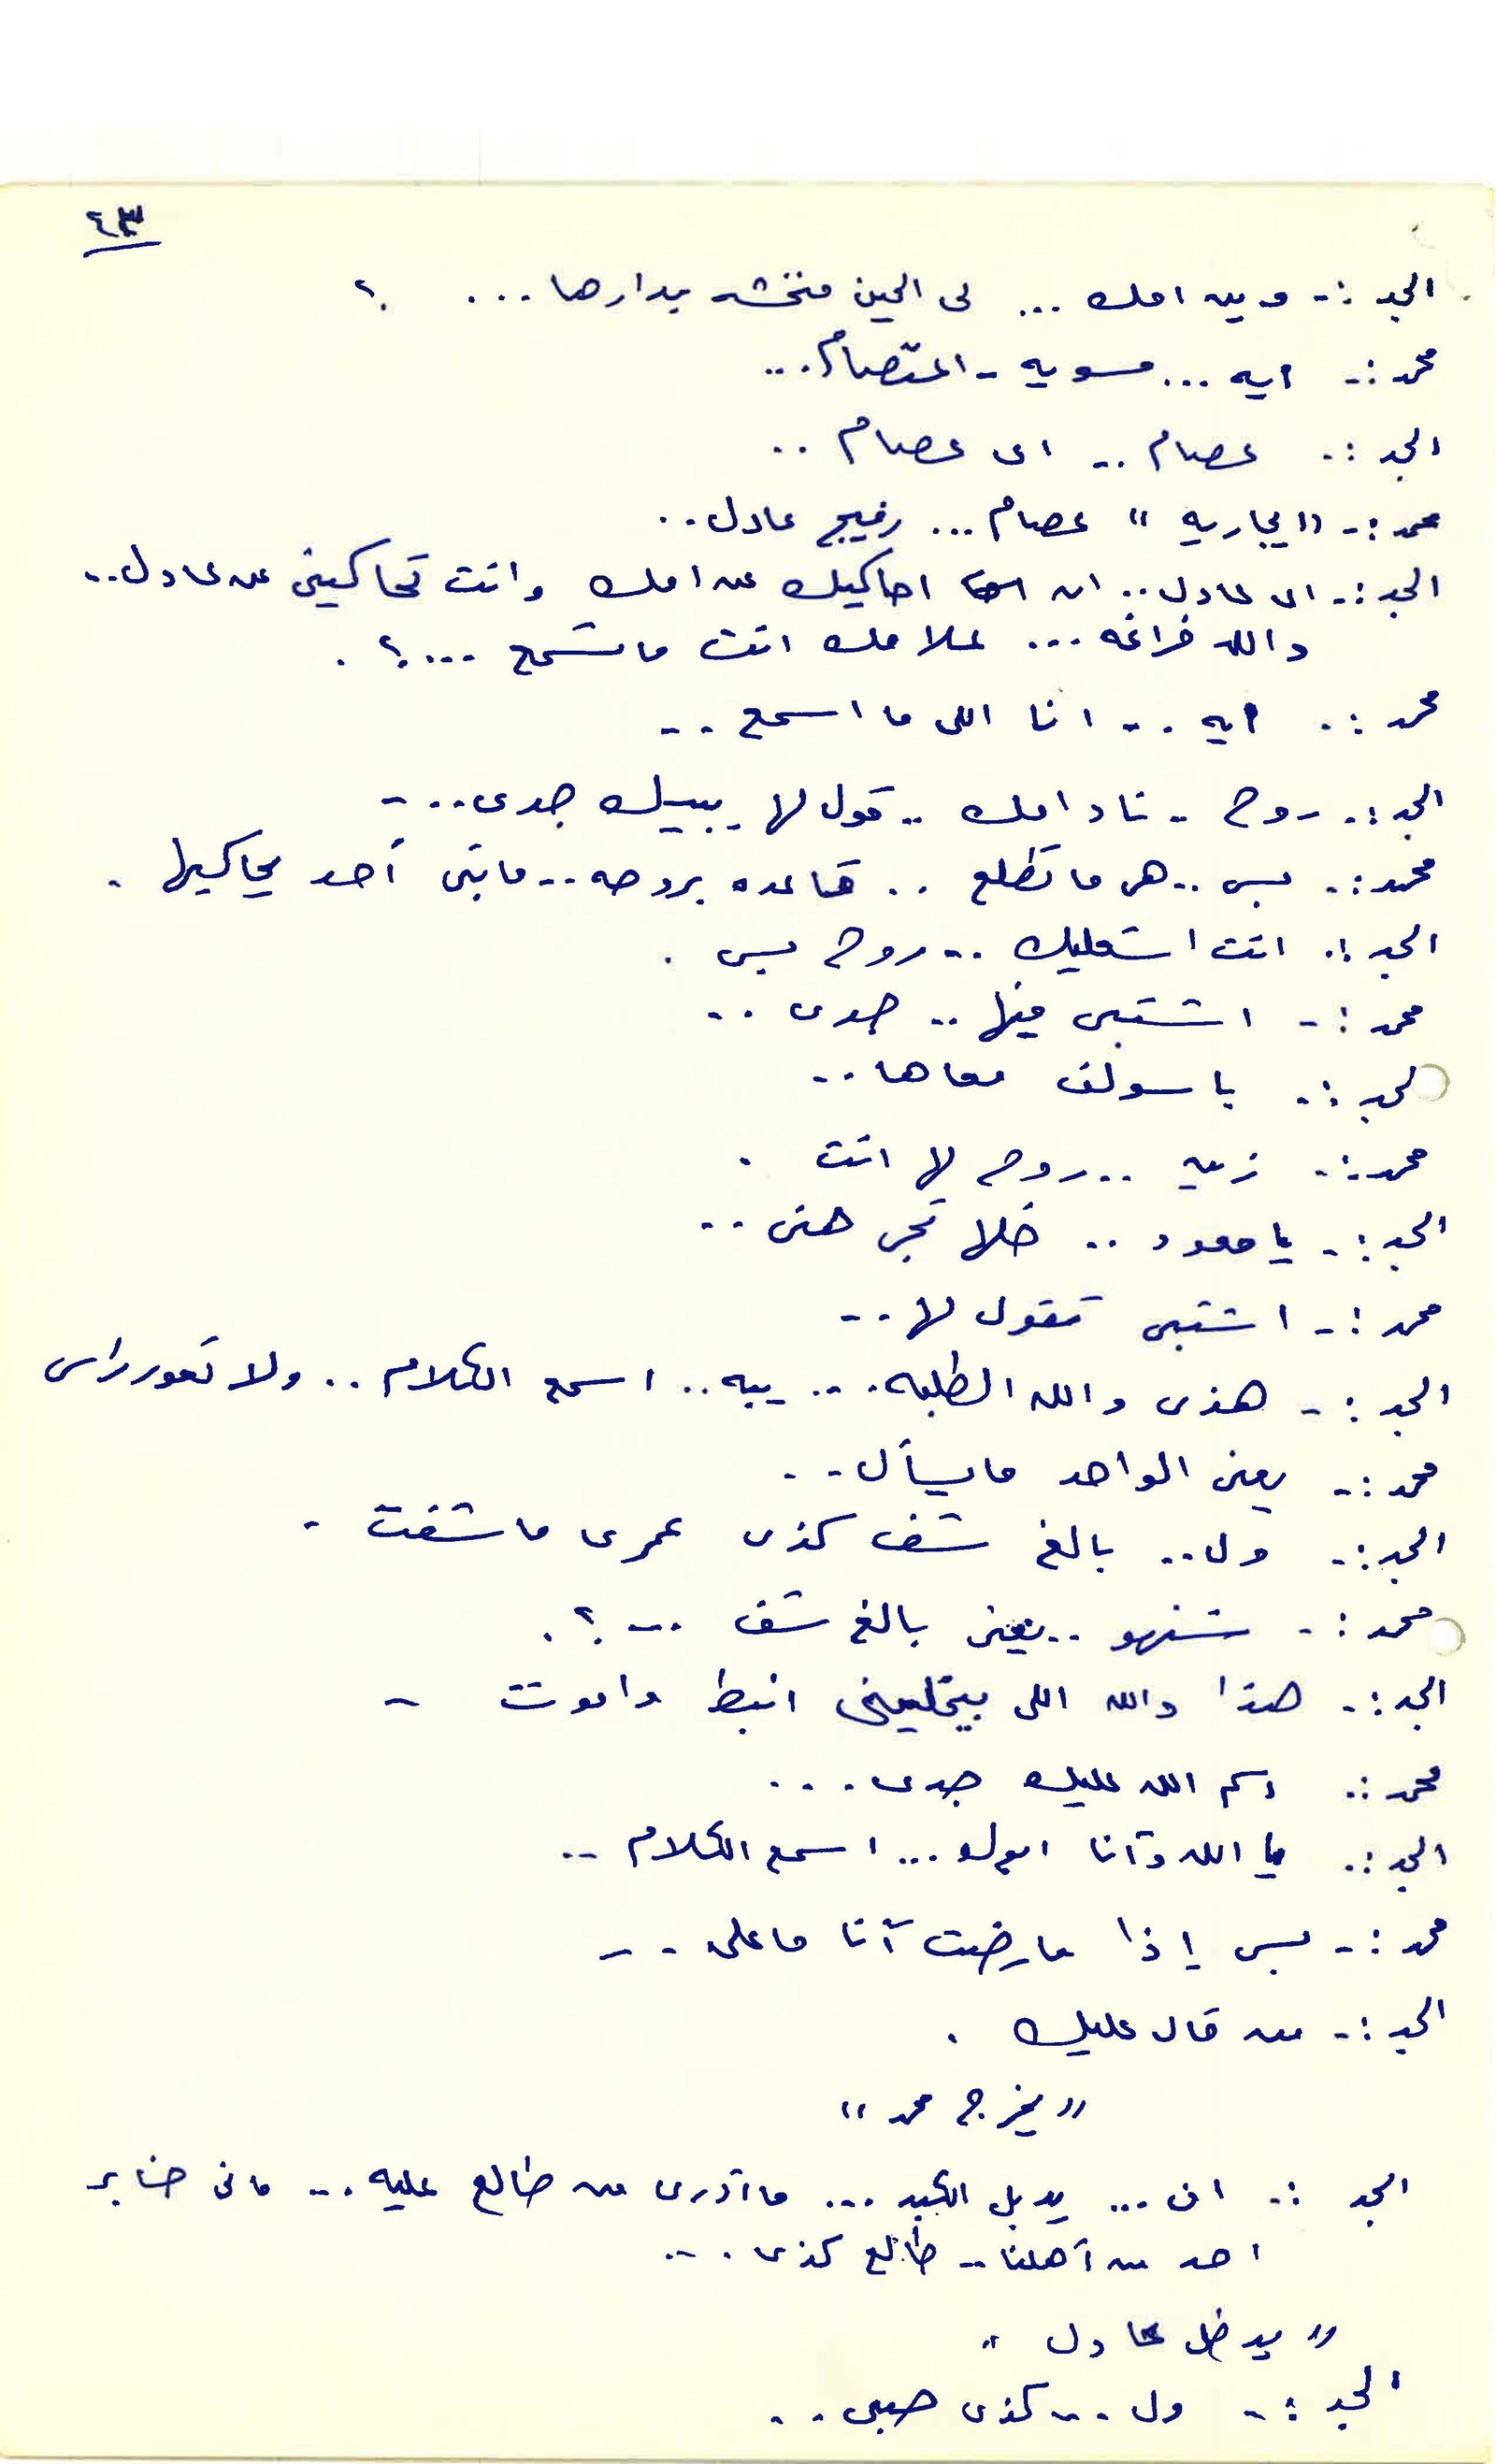 ٦٣
الجد :- وين امك ... لى الحين منخشه بدارها ... ؟
محمد :- ايه ... مسويه - اعتصام ...
الجد :- عصام .. اى عصام ..
محمد :- "يجاريه" عصام ... رفيج عادل ..
الجد :- اى عادل .. ان احاكيك عن امك وانت تحاكينى عن عادل ..
والله فراغه ... علامك انت ماتسمع ... ؟ .
محمد :- ايه .. انا اللى ما اسمع ..
الجد :- روح - ناد امك .. قول لها يبيك جدى ..
محمد :- بس .. هى ما تطلع .. قاعده بروحه .. ماتبى أحد يحاكيها .
الجد :- انت اشعليك .. روح بس .
محمد :- اشتبى فيها .. جدى ..
الجد :- باسولف معاها ..
محمد :- زين .. روح لها انت .
الجد :- يا معود .. خلها تجى هنى ..
محمد :- اشتبى تقول لها ..
الجد :- هذى والله الطلبه ... يبه .. اسمع الكلام .. ولا تعور راسى
محمد :- يعنى الواحد مايسأل ..
الجد :- ول .. بالغ شف كذى عمرى ماشفت .
محمد :- شنهو .. يعنى بالغ شف ... ؟ .
الجد :- هذا والله اللى بيخلينى انبط واموت -
محمد :- اسم الله عليك جدى ...
الجد :- يا الله وآنا ابوك ... اسمع الكلام ..
محمد :- بس إذا مارضت آنا ماعلى ..
الجد :- من قال عليك .
"يخرج محمد"
الجد :- اف ... يدبل الكبد ... ما أدرى من طالع عليه ... مافى خابر
احد من أهلنا .. طالع كذى ...
"يدخل عادل"
الجد :- ول ... كذى صبى ..